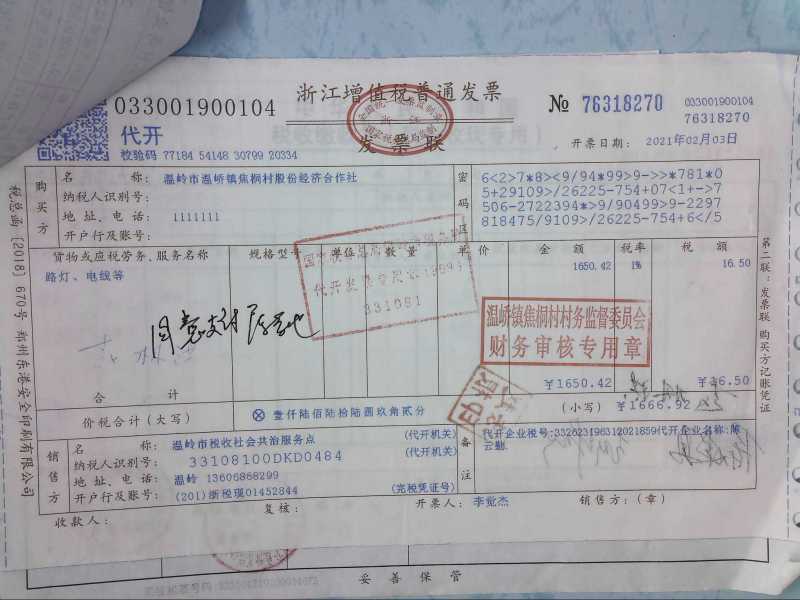 浙江增值税普通发票
发票联
033001900104
代开
校验码 77184 54148 30799 20334
№ 76318270
033001900104
76318270
开票日期: 2021年02月03日
税总函〔2018〕670号 郑州东港安全印刷有限公司
购买方
名 称: 温岭市温峤镇焦桐村股份经济合作社
纳税人识别号:
地 址、电 话: 1111111
开户行及账号:
密码区
6<2>7*8><9/94*99>9->>*781*0
5+29109>/26225-754+07<1+->7
506-2722394*>9/90499>9-2297
818475/9109>/26225-754-6</5
货物或应税劳务、服务名称 规格型号 单位 数量 单价 金额 税率 税额
路灯、电线等 1650.42 1% 16.50
代开发票专用章
331081
同意支付
温峤镇焦桐村村务监督委员会
财务审核专用章
合 计 ¥1650.42 ¥16.50
价税合计(大写) ⊗壹仟陆佰陆拾陆圆玖角贰分 (小写) ¥1666.92
销售方
名 称: 温岭市税收社会共治服务点 (代开机关)
纳税人识别号: 33108100DKD0484 (代开机关)
地 址、电 话: 温岭 13606868299
开户行及账号: (201)浙税现01452844 (完税凭证号)
备注
代开企业税号:332623196312021859代开企业名称:陈
云勉
收款人: 复核: 开票人: 李觉杰 销售方:(章)
第二联:发票联 购买方记账凭证
妥善保管